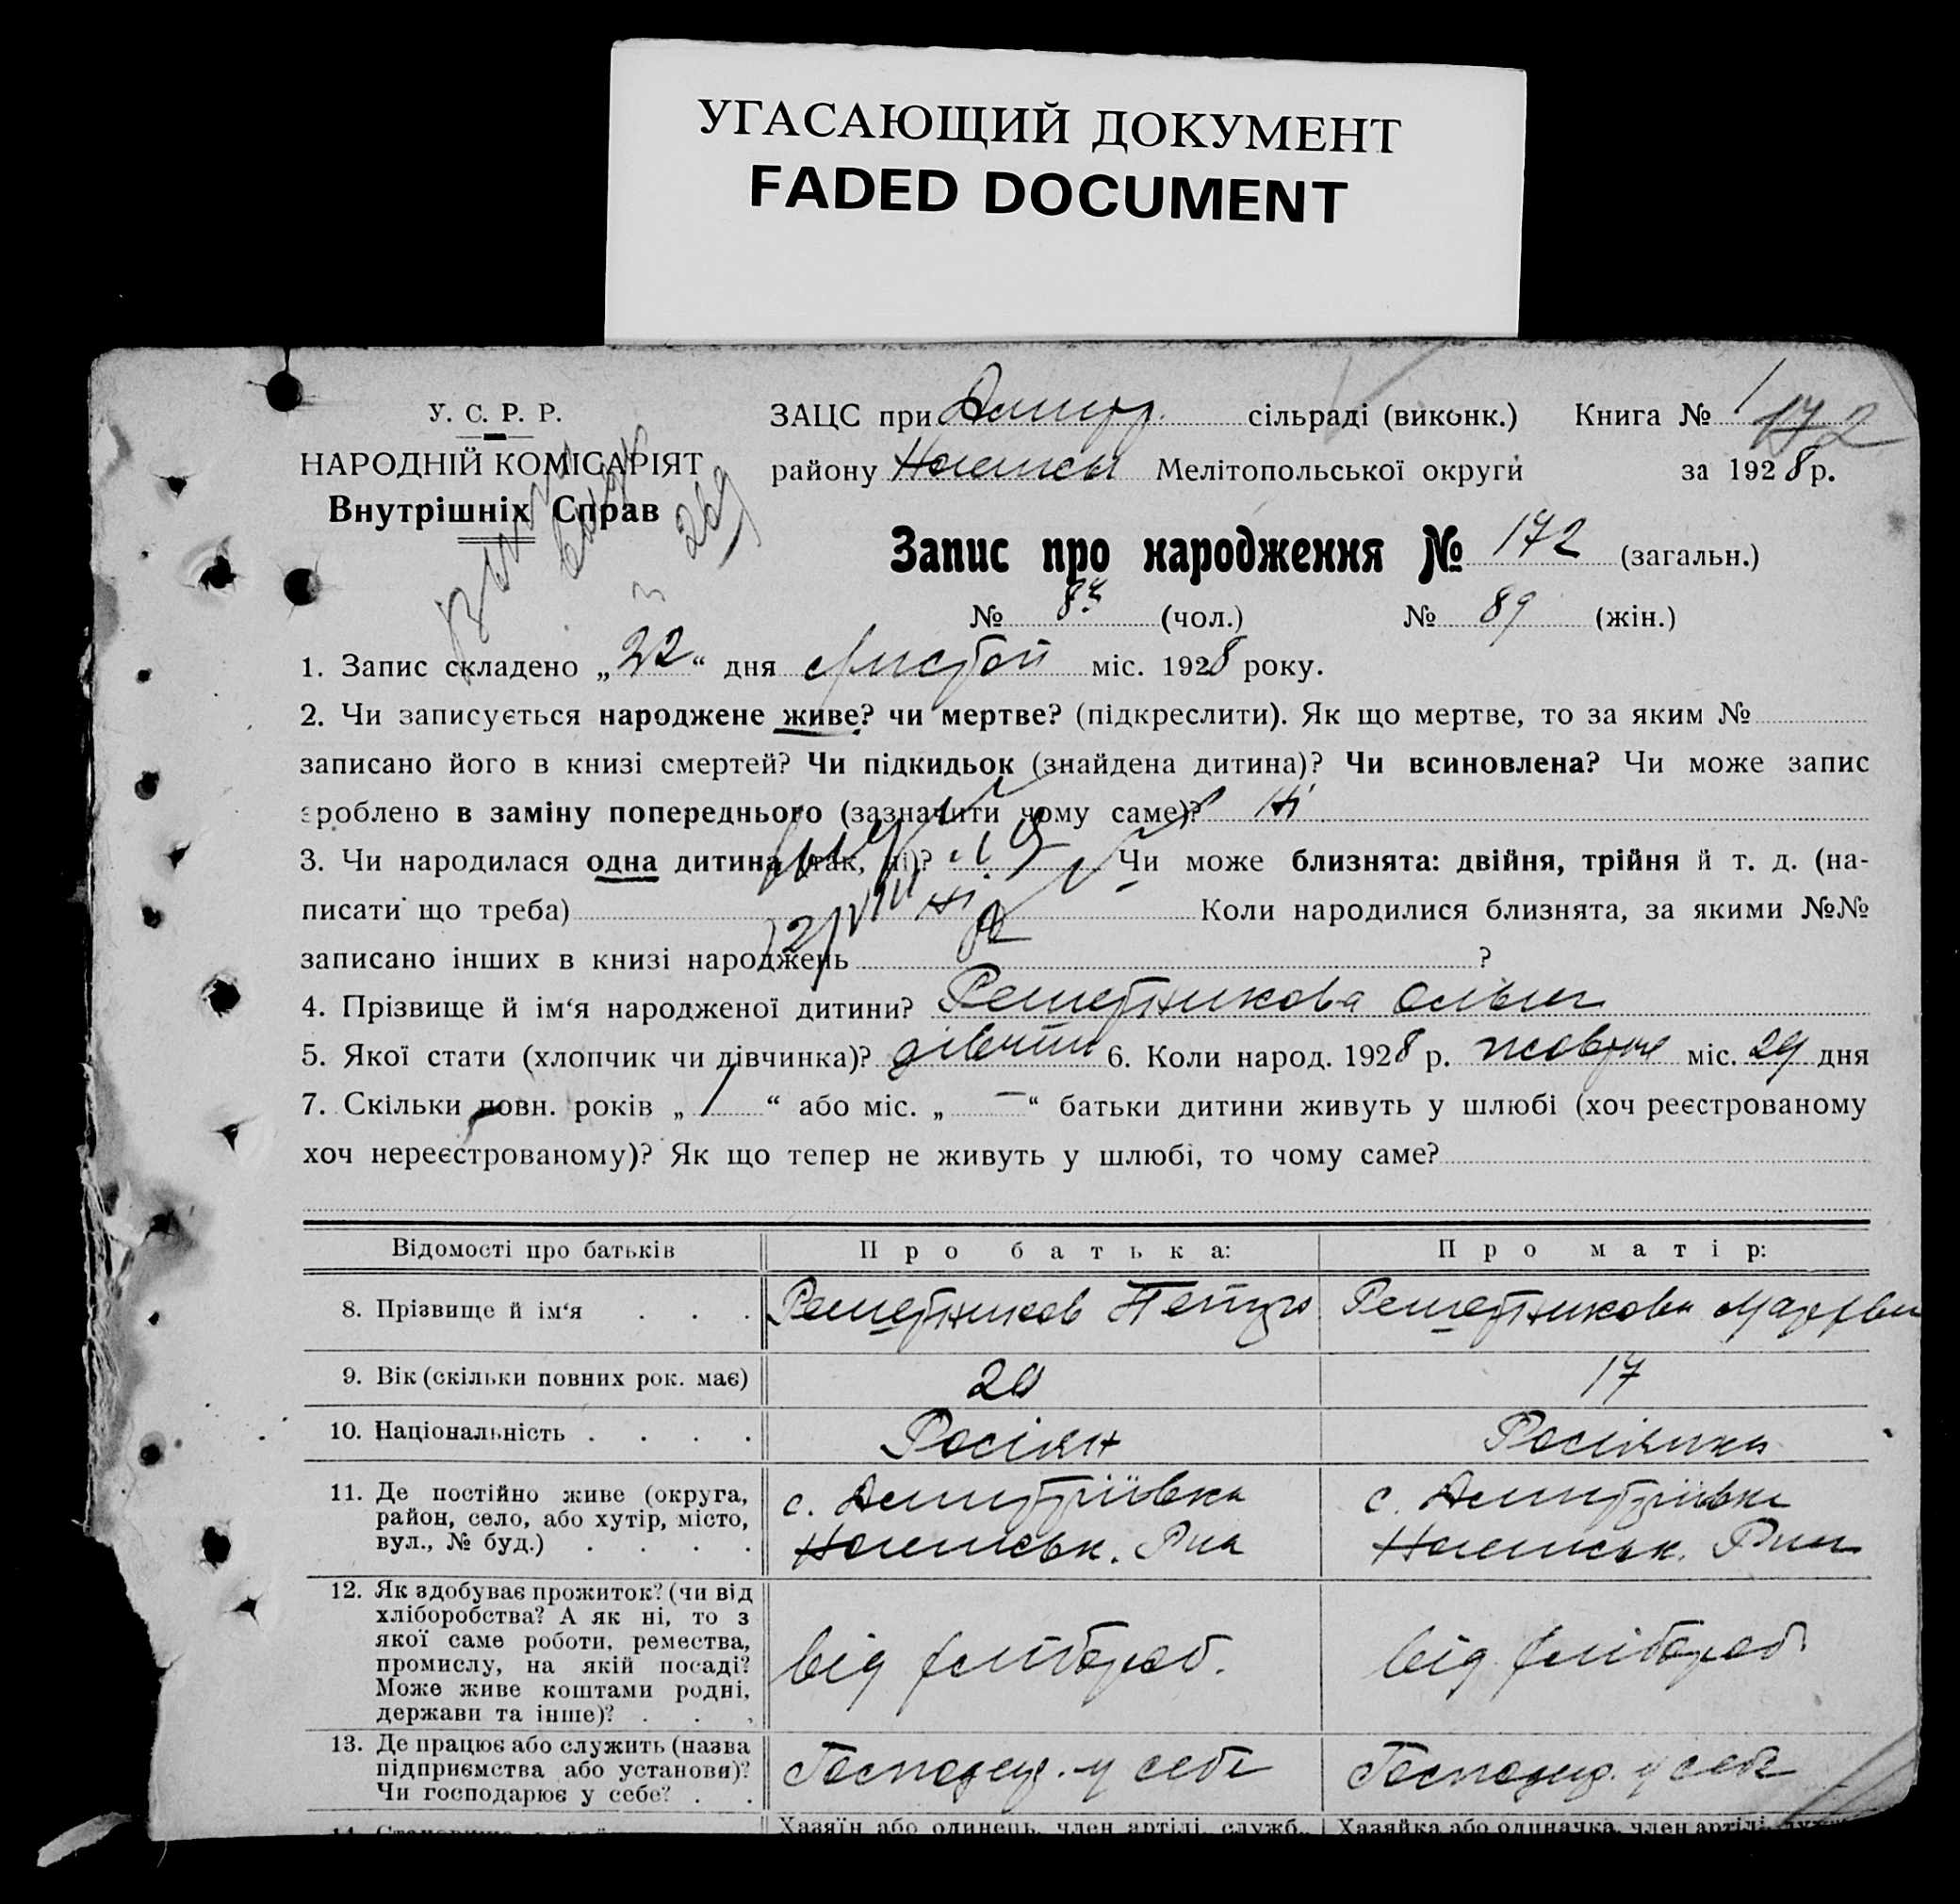 УГАСАЮЩИЙ ДОКУМЕНТ
FADED DOCUMENT
У. С. Р. Р.
НАРОДНІЙ КОМІСАРІЯТ
Внутрішніх Справ
ЗАЦС при сільраді (виконк.) Книга № 1
172
району Мелітопольської округи за 1928 р.
Запис про народження № 172 (загальн.)
№ 83 (чол.) № 89 (жін.)
1. Запис складено „22“ дня листоп міс. 1928 року.
2. Чи записується народжене живе? чи мертве? (підкреслити). Як що мертве, то за яким №
записано його в книзі смертей? Чи підкидьок (знайдена дитина)? Чи всиновлена? Чи може запис
зроблено в заміну попереднього (зазначити чому саме)? Ні
3. Чи народилася одна дитина (так, ні)? Чи може близнята: двійня, трійня й т. д. (на-
писати що треба) ні Коли народилися близнята, за якими №№
записано інших в книзі народжень ?
4. Прізвище й ім‘я народженої дитини? Решетникова Ольга
5. Якої стати (хлопчик чи дівчинка)? дівчин 6. Коли народ. 1928 р. жовтня міс. 29 дня
7. Скільки повн. років „ 1 “ або міс. „ — “ батьки дитини живуть у шлюбі (хоч реєстрованому
хоч нереєстрованому)? Як що тепер не живуть у шлюбі, то чому саме?
Відомості про батьків Про батька: Про матір:
8. Прізвище й ім‘я . . . Решетников Петро Решетникова Марфа
9. Вік (скільки повних рок. має) 20 17
10. Національність . . . . Росіян Росіянка
11. Де постійно живе (округа,
район, село, або хутір, місто,
вул., № буд.) . . . .
с. Дмитріївка
Рна
с. Дмитріївка
Рна
12. Як здобуває прожиток? (чи від
хліборобства? А як ні, то з
якої саме роботи, ремества,
промислу, на якій посаді?
Може живе коштами родні,
держави та інше)? . . .
від хлібороб. від хлібороб.
13. Де працює або служить (назва
підприємства або установи)?
Чи господарює у себе? . .
Господар. у себе Господар. у себе
Хазяїн або одинець, член артілі, служб., Хазяйка або одиначка, член артілі,